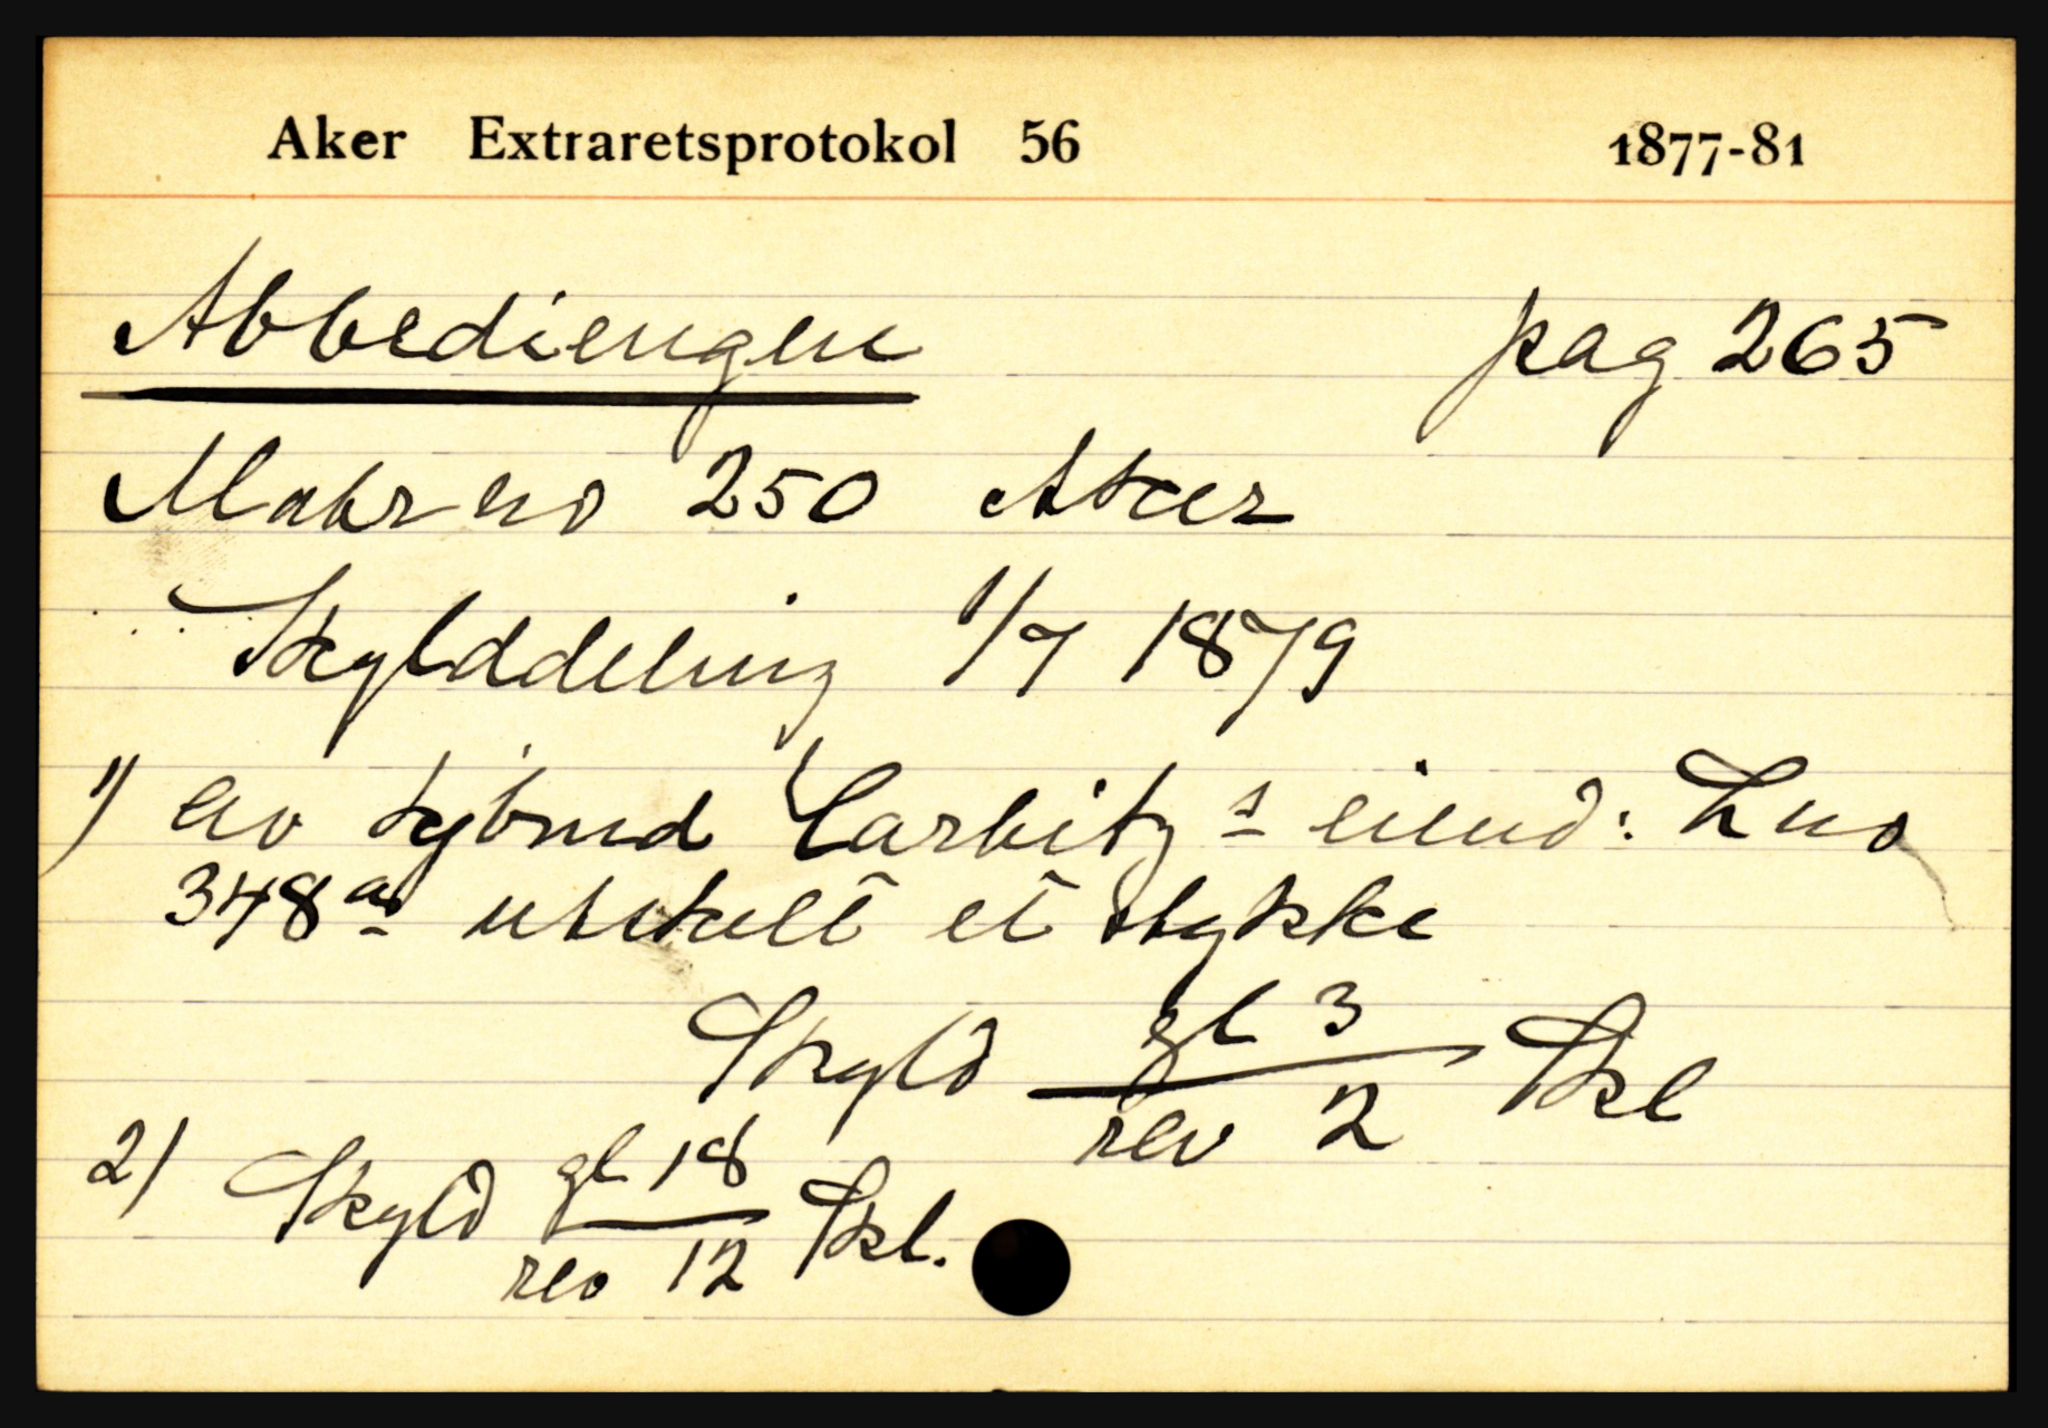 Aker Extraretsprotokol 56 1877-81
Abbediengen pag 265
Matr no 250 Aker
Skylddeling 1/7 1879
1) av kjöbmd Carbitz s eiend: Lno
348 a utskilt et stykke
Skyld gl 3 / rev 2 Skl
2) Skyld gl 18 / rev 12 Skl.